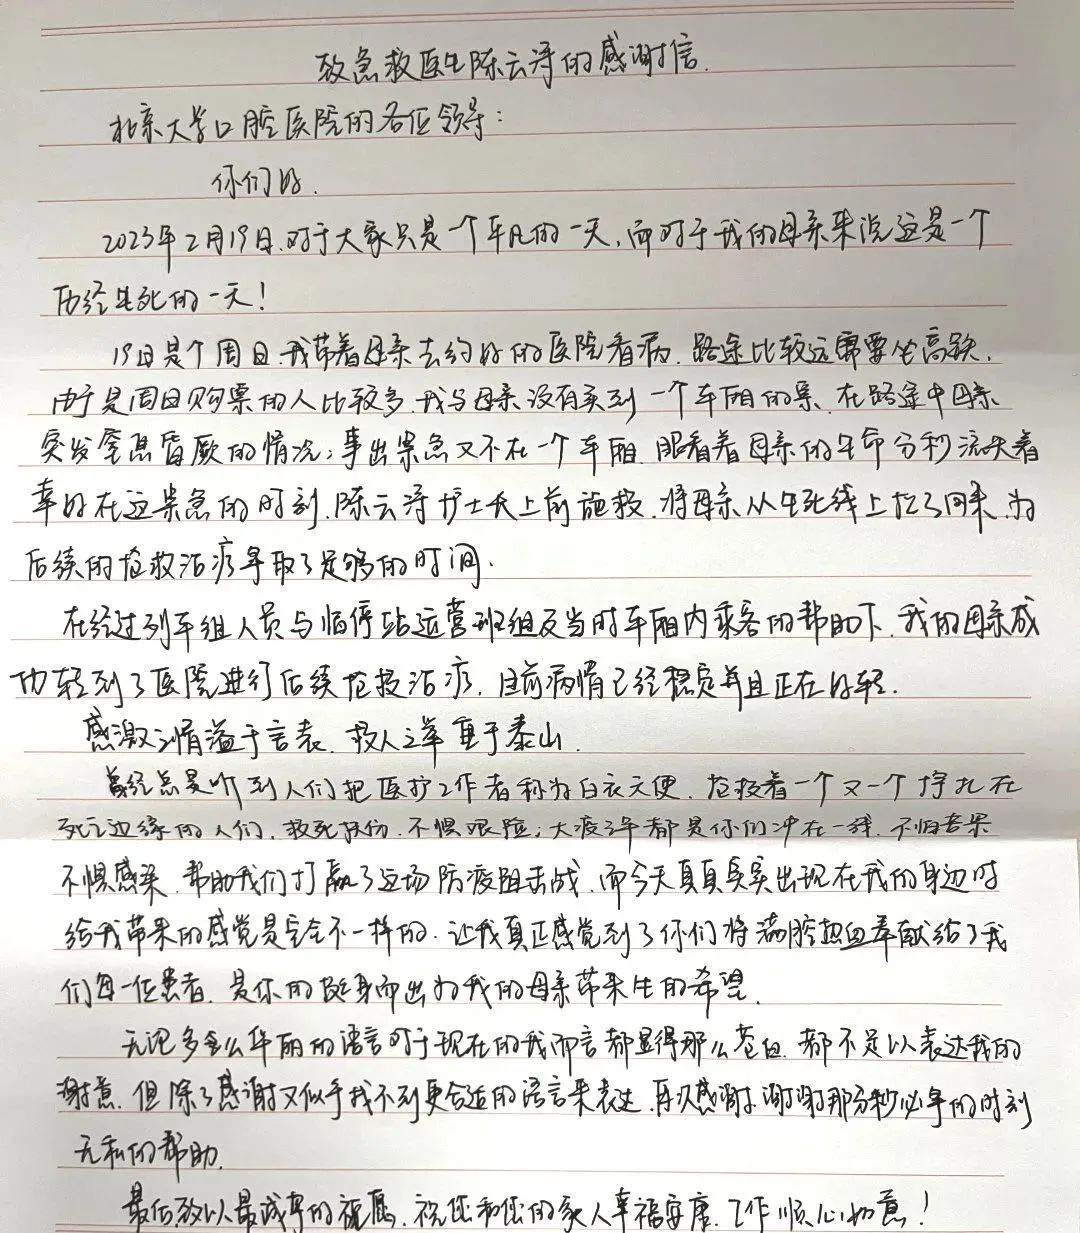 致急救医生陈云涛的感谢信.
北京大学口腔医院的各位领导：
你们好.
2023年2月19日.对于大家只是一个平凡的一天,而对于我的母亲来说这是一个
历经生死的一天！
19日是个周日.我带着母亲去约好的医院看病.路途比较远需要坐高铁.
由于是周日购票的人比较多.我与母亲没有买到一个车厢的票.在路途中母亲
突发窒息昏厥的情况;事出紧急又不在一个车厢.眼看着母亲的生命分秒流失着
幸好在这紧急的时刻.陈云涛护士长上前施救.将母亲从生死线上拉了回来.为
后续的抢救治疗争取了足够的时间.
在经过列车组人员与临停站运营班组及当时车厢内乘客的帮助下.我的母亲成
功转到了医院进行后续抢救治疗.目前病情已经稳定并且正在好转.
感激之情溢于言表.救人之举重于泰山.
曾经总是听到人们把医护工作者称为白衣天使.抢救着一个又一个挣扎在
死亡边缘的人们.救死扶伤.不惧艰险;大疫三年都是你们冲在一线.不怕苦累
不惧感染.帮助我们打赢了这场防疫阻击战.而今天真真实实出现在我的身边时
给我带来的感觉是完全不一样的.让我真正感觉到了你们将满腔热血奉献给了我
们每一位患者.是你的挺身而出为我的母亲带来生的希望.
无论多么华丽的语言对于现在的我而言都显得那么苍白.都不足以表达我的
谢意.但除了感谢又似乎找不到更合适的语言来表达.再次感谢.谢谢那分秒必争的时刻
无私的帮助.
最后致以最诚挚的祝愿.祝您和您的家人幸福安康.工作顺心如意！